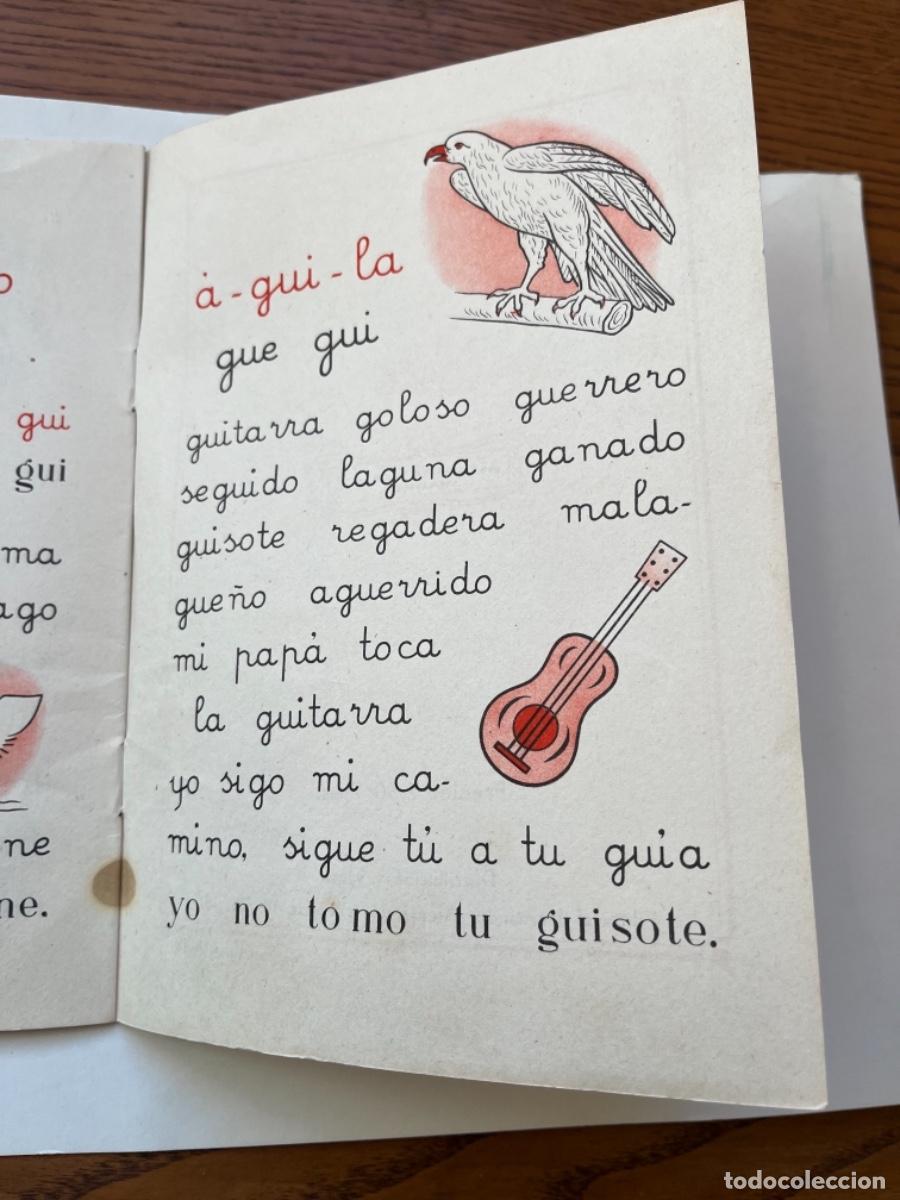 o
gui
gui
ma
ago
ne
ne.
á-gui-la
gue gui
guitarra goloso guerrero
seguido laguna ganado
guisote regadera mala-
gueño aguerrido
mi papá toca
la guitarra
yo sigo mi ca-
mino, sigue tú a tu guía
yo no tomo tu guisote.
todocoleccion